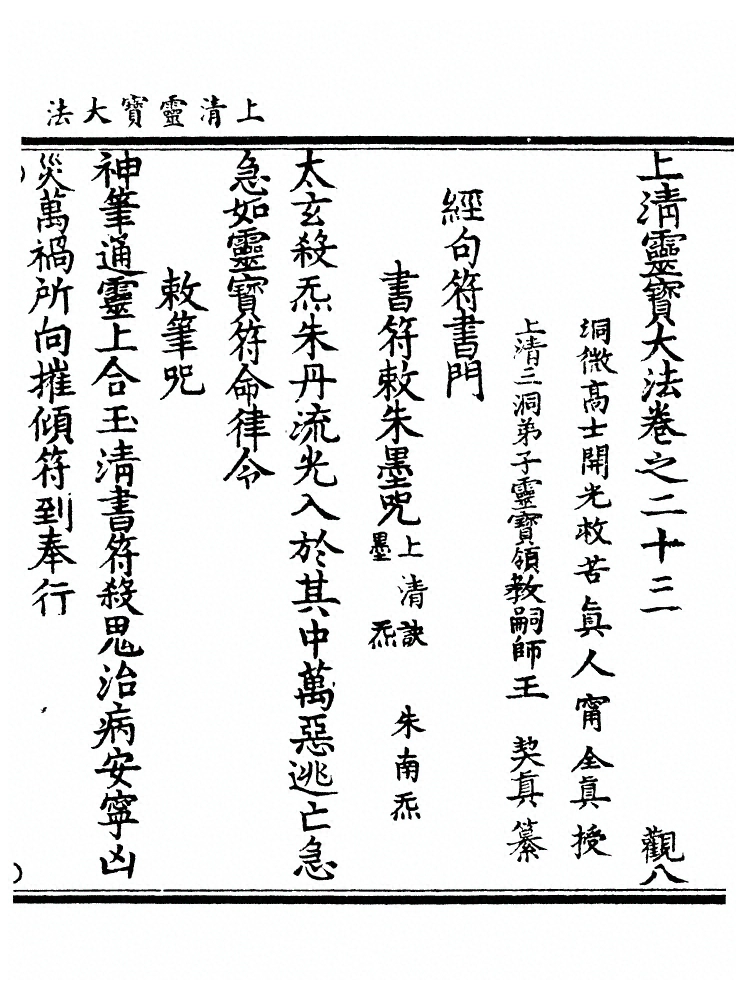 上清靈寶大法
上清靈寶大法卷之二十三　觀八
洞微高士開光救苦真人甯全真授
上清三洞弟子靈寶領教嗣師王　契真纂
經句符書門
書符敕朱墨咒上清訣　朱南炁
墨　炁
太玄殺炁朱丹流光入於其中萬惡逃亡急
急如靈寶符命律令
敕筆咒
神筆通靈上合玉清書符殺鬼治病安寧凶
災萬禍所向摧傾符到奉行